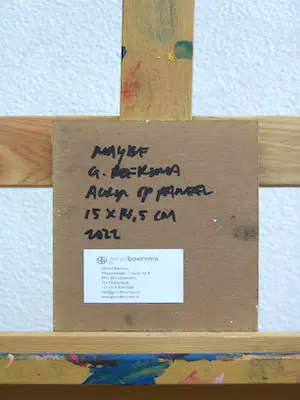 MAYBE
G. BOERSMA
ACRYL OP PANEEL
15 X 14,5 CM
2022
gerardboersma
Gerard Boersma
The Netherlands